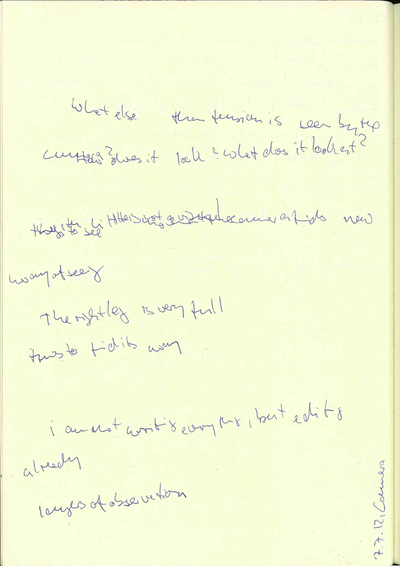 What else than tension is seen by the
camera? How does it look? What does it look at?
things to see the camera finds new
way of seeing
The right leg is very full
tries to find its way
i am not writing everything, but editing
already
layers of observation
7.7.12, Camera